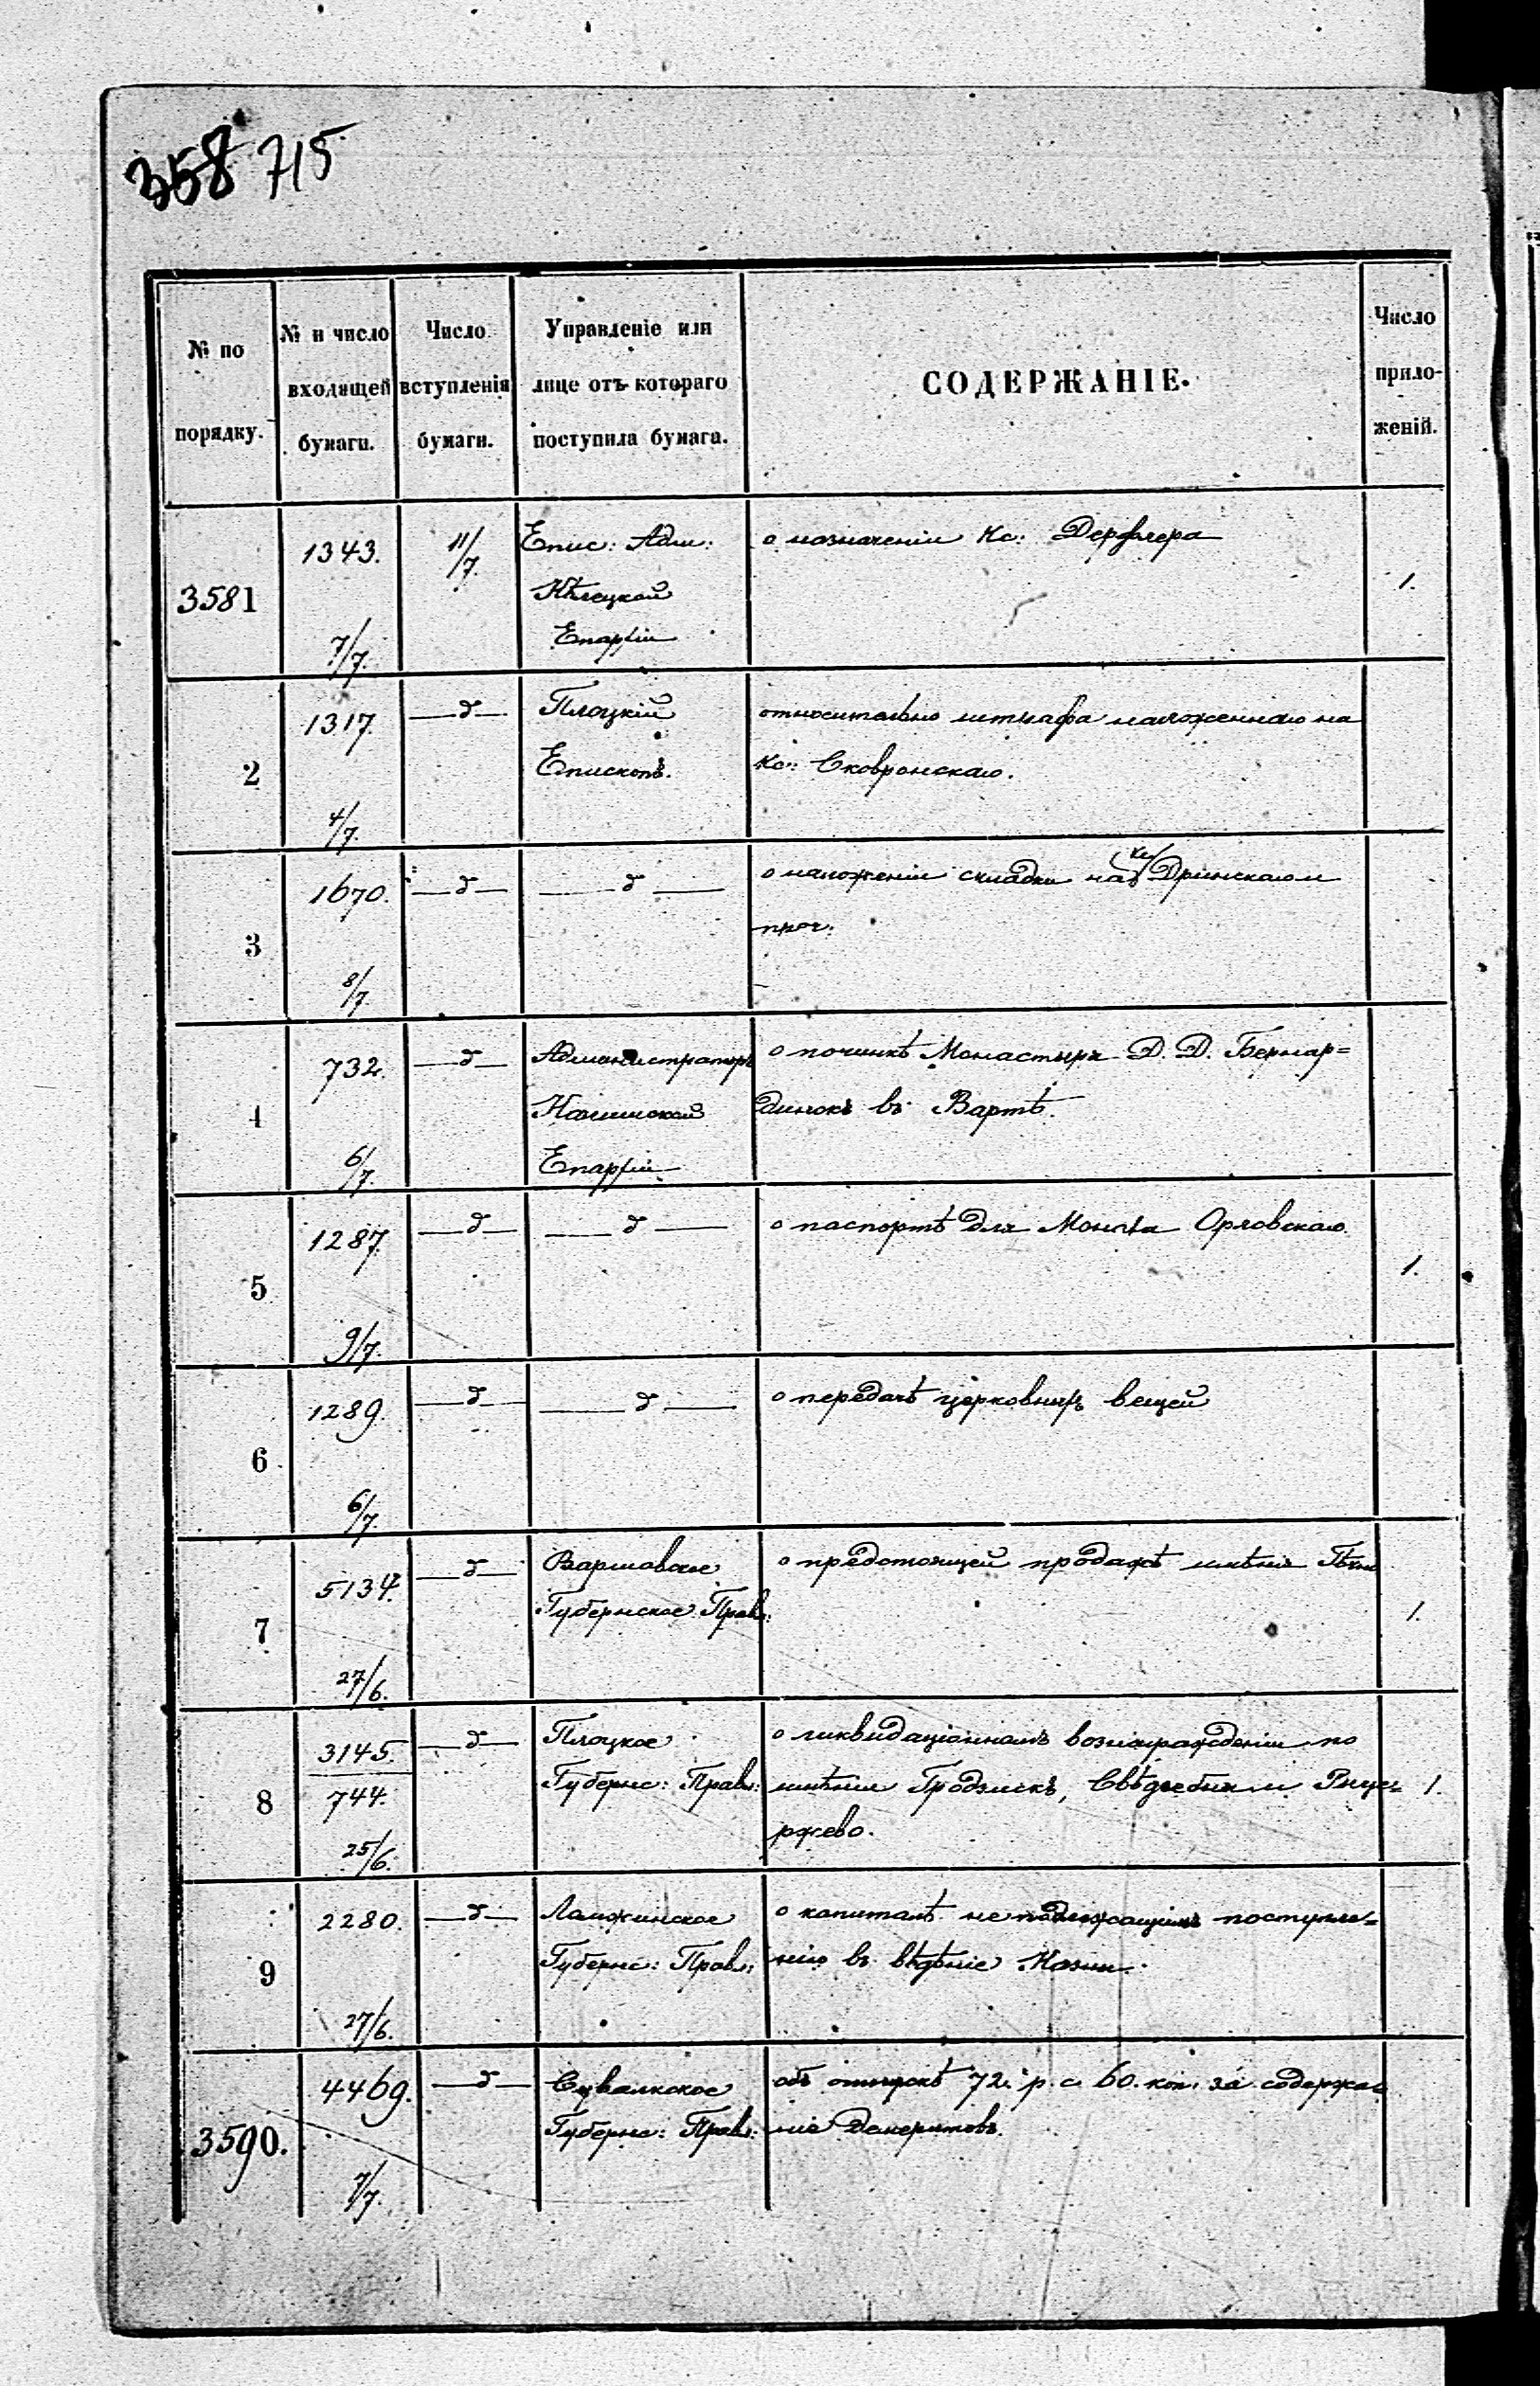 358 715
№ по порядку.
№ и число входящей бумаги.
Число вступленія бумаги.
Управленіе или лице отъ котораго поступила бумага.
СОДЕРЖАНІЕ.
Число приложеній.
3581
1343.
7/7.
11/7.
Епис: Адм:
Кѣлецкой
Епархіи
о назначеніи Кс: Дерфлера
1.
2
1317.
4/7.
—д—
Плоцкій
Епископъ.
относительно штрафа наложеннаго на
Кс: Сковронскаго.
3
1670.
8/7.
—д—
—д—
о наложеніи складки на Кс Дринскаго и
проч:
4
732.
6/7.
—д—
Администраторъ
Калишской
Епархіи
о починкѣ Монастыря Д. Д. Бернар=
динокъ въ Вартѣ.
5
1287.
9/7.
—д—
—д—
о паспортѣ для Монаха Орловскаго.
1.
6
1289.
6/7.
—д—
—д—
о передачѣ церковныхъ вещей
7
5134.
27/6.
—д—
Варшавское
Губернское Прав:
о предстоящей продажѣ имѣнія
1.
8
3145.
744.
25/6.
—д—
Плоцкое
Губернс: Правл:
о ликвидаціонномъ вознагражденіи по
имѣнію Гродзискъ, и
ржево.
1.
9
2280.
27/6.
—д—
Ломжинское
Губернс: Правл:
о капиталѣ не подлежащимъ поступле=
нію въ вѣдѣніе Казны.
3590.
4469.
7/7.
—д—
Сувалкское
Губернс: Правл:
объ отпускѣ 72. р. с. 60. коп. за содержа=
ніе Демеритовъ.